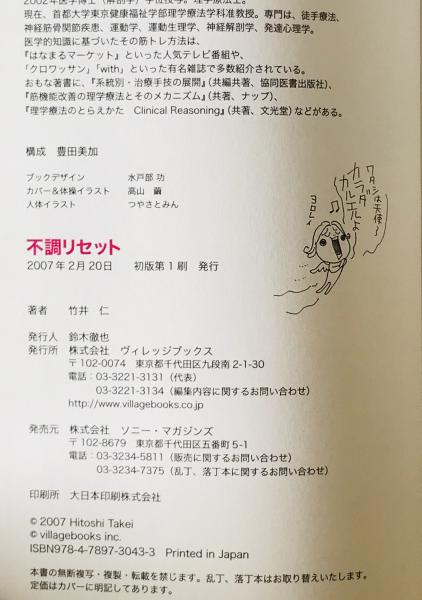 2002年医学博士（解剖学）学位授与。理学療法士。
現在、首都大学東京健康福祉学部理学療法学科准教授。専門は、徒手療法、
神経筋骨関節疾患、運動学、運動生理学、神経解剖学、発達心理学。
医学的知識に基づいたその筋トレ方法は、
『はなまるマーケット』といった人気テレビ番組や、
「クロワッサン」「with」といった有名雑誌で多数紹介されている。
おもな著書に、『系統別・治療手技の展開』（共編共著、協同医書出版社）、
『筋機能改善の理学療法とそのメカニズム』（共著、ナップ）、
『理学療法のとらえかた Clinical Reasoning』（共著、文光堂）などがある。
構成 豊田美加
ブックデザイン 水戸部 功
カバー＆体操イラスト 高山 繭
人体イラスト つやさとみん
ワタシは天使〜
カラダ
カルエルよ
ヨロレイ
不調リセット
2007年2月20日 初版第1刷 発行
著者 竹井 仁
発行人 鈴木徹也
発行所 株式会社 ヴィレッジブックス
〒102-0074 東京都千代田区九段南2-1-30
電話：03-3221-3131（代表）
03-3221-3134（編集内容に関するお問い合わせ）
http://www.villagebooks.co.jp
発売元 株式会社 ソニー・マガジンズ
〒102-8679 東京都千代田区五番町5-1
電話：03-3234-5811（販売に関するお問い合わせ）
03-3234-7375（乱丁、落丁本に関するお問い合わせ）
印刷所 大日本印刷株式会社
© 2007 Hitoshi Takei
© villagebooks inc.
ISBN978-4-7897-3043-3 Printed in Japan
本書の無断複写・複製・転載を禁じます。乱丁、落丁本はお取り替えいたします。
定価はカバーに明記してあります。